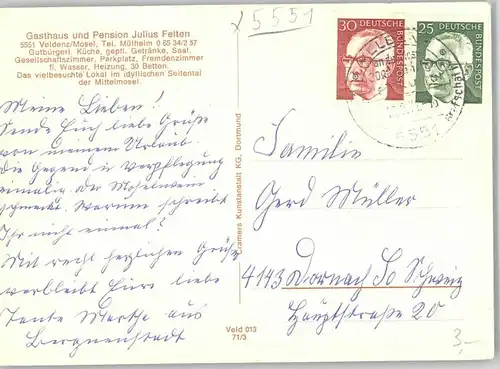 Gasthaus und Pension Julius Felten
5551 Veldenz/Mosel, Tel. Mülheim 0 65 34/2 57
Gutbürgerl. Küche, gepfl. Getränke, Saal,
Gesellschaftszimmer, Parkplatz, Fremdenzimmer
fl. Wasser, Heizung, 30 Betten.
Das vielbesuchte Lokal im idyllischen Seitental
der Mittelmosel.
5551
30 DEUTSCHE BUNDESPOST
25 DEUTSCHE BUNDESPOST
5551
Meine Lieben!
Sende Euch liebe Grüße
von meinem Urlaub.
Die Gegend u. Verpflegung
einmalig. Der Moselwein
schmeckt. Warum schreibt
Ihr nicht einmal?
Mit recht herzlichen Grüße
verbleibt Eure liebe
Tante Martha aus
Cramers Kunstanstalt KG, Dortmund
Familie
Gerd Müller
4143 Dornach So Schweiz
Hauptstraße 20
Veld 013
71/3
3,-